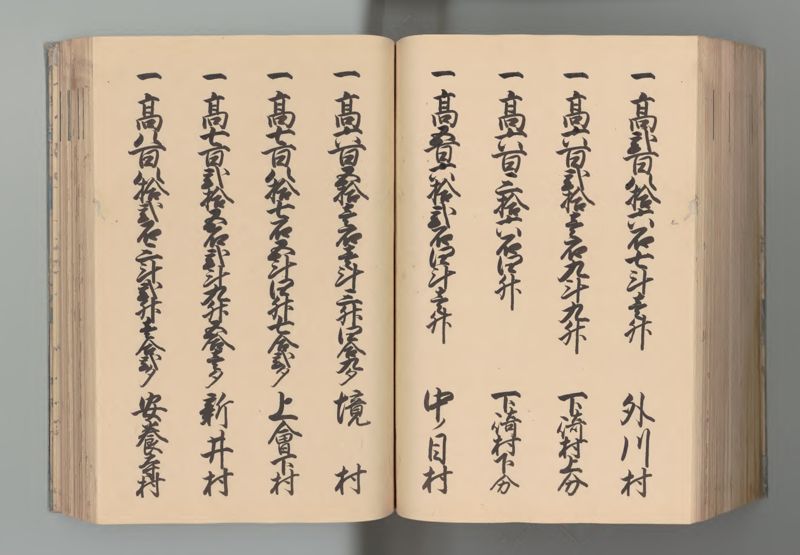 一高弐百八拾六石七斗壱升 外川村
一高六百弐拾壱石九斗九升 下崎村上分
一高六百三拾八石四升 下崎村下分
一高五百六拾弐石四斗壱升 中ノ目村
一高六百五拾壱石壱斗三升四合九夕 境村
一高七百八拾七石五斗四升七合弐夕 上會下村
一高七百弐拾五石弐斗九升五合壱夕 新井村
一高八百八拾弐石三斗弐升壱合弐夕 安養寺村